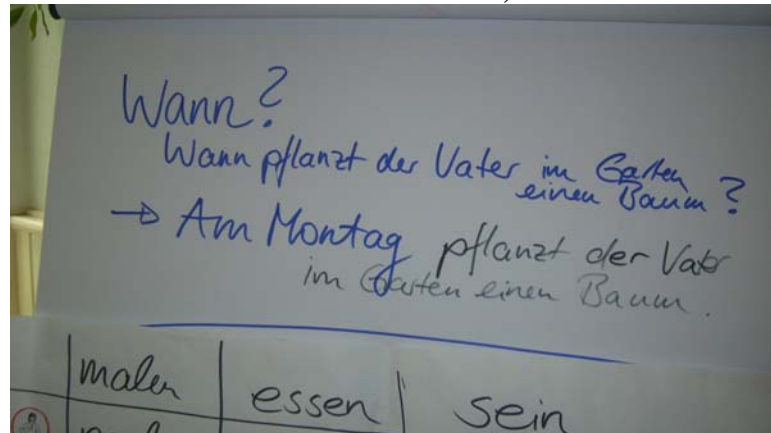 Wann?
Wann pflanzt der Vater im Garten
einen Baum?
→ Am Montag pflanzt der Vater
im Garten einen Baum.
malen essen sein